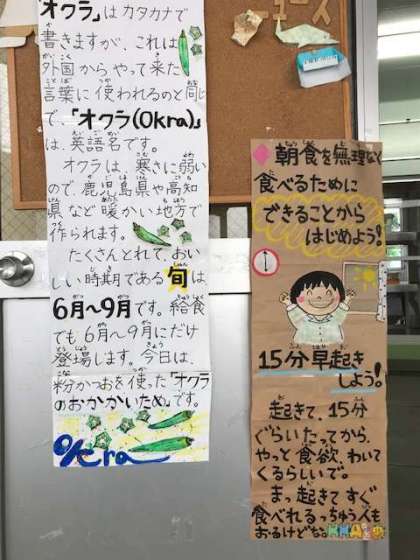 「オクラ」はカタカナで
書きますが、これは
外国からやって来た
言葉に使われるのと同じ
で、「オクラ(Okra)」
は、英語名です。
オクラは、寒さに弱い
ので、鹿児島県や高知
県など暖かい地方で
作られます。
たくさんとれて、おい
しい時期である旬は、
6月〜9月です。給食
でも6月〜9月にだけ
登場します。今日は、
粉かつおを使った「オクラ
のおかかいため」です。
Okra
ニュース
朝食を無理なく
食べるために
できることから
はじめよう!
15分早起き
しよう!
起きて、15分
ぐらいたってから、
やっと食欲、わいて
くるらしいで。
まっ起きてすぐ
食べれるっちゅう人も
おるけどな。